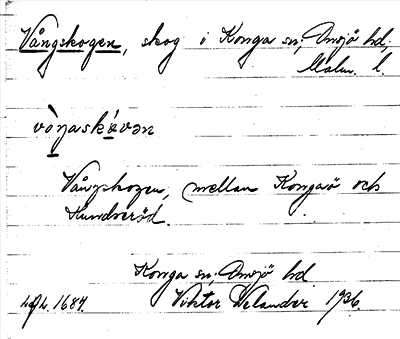 Vångskogen, skog i Konga sn, Onsjö hd,
Malm. l.
vòŋaskávən
Vångskogen, mellan Kongaö och
Hundseröd.
Konga sn, Onsjö hd
1684. Viktor Welander 1936.